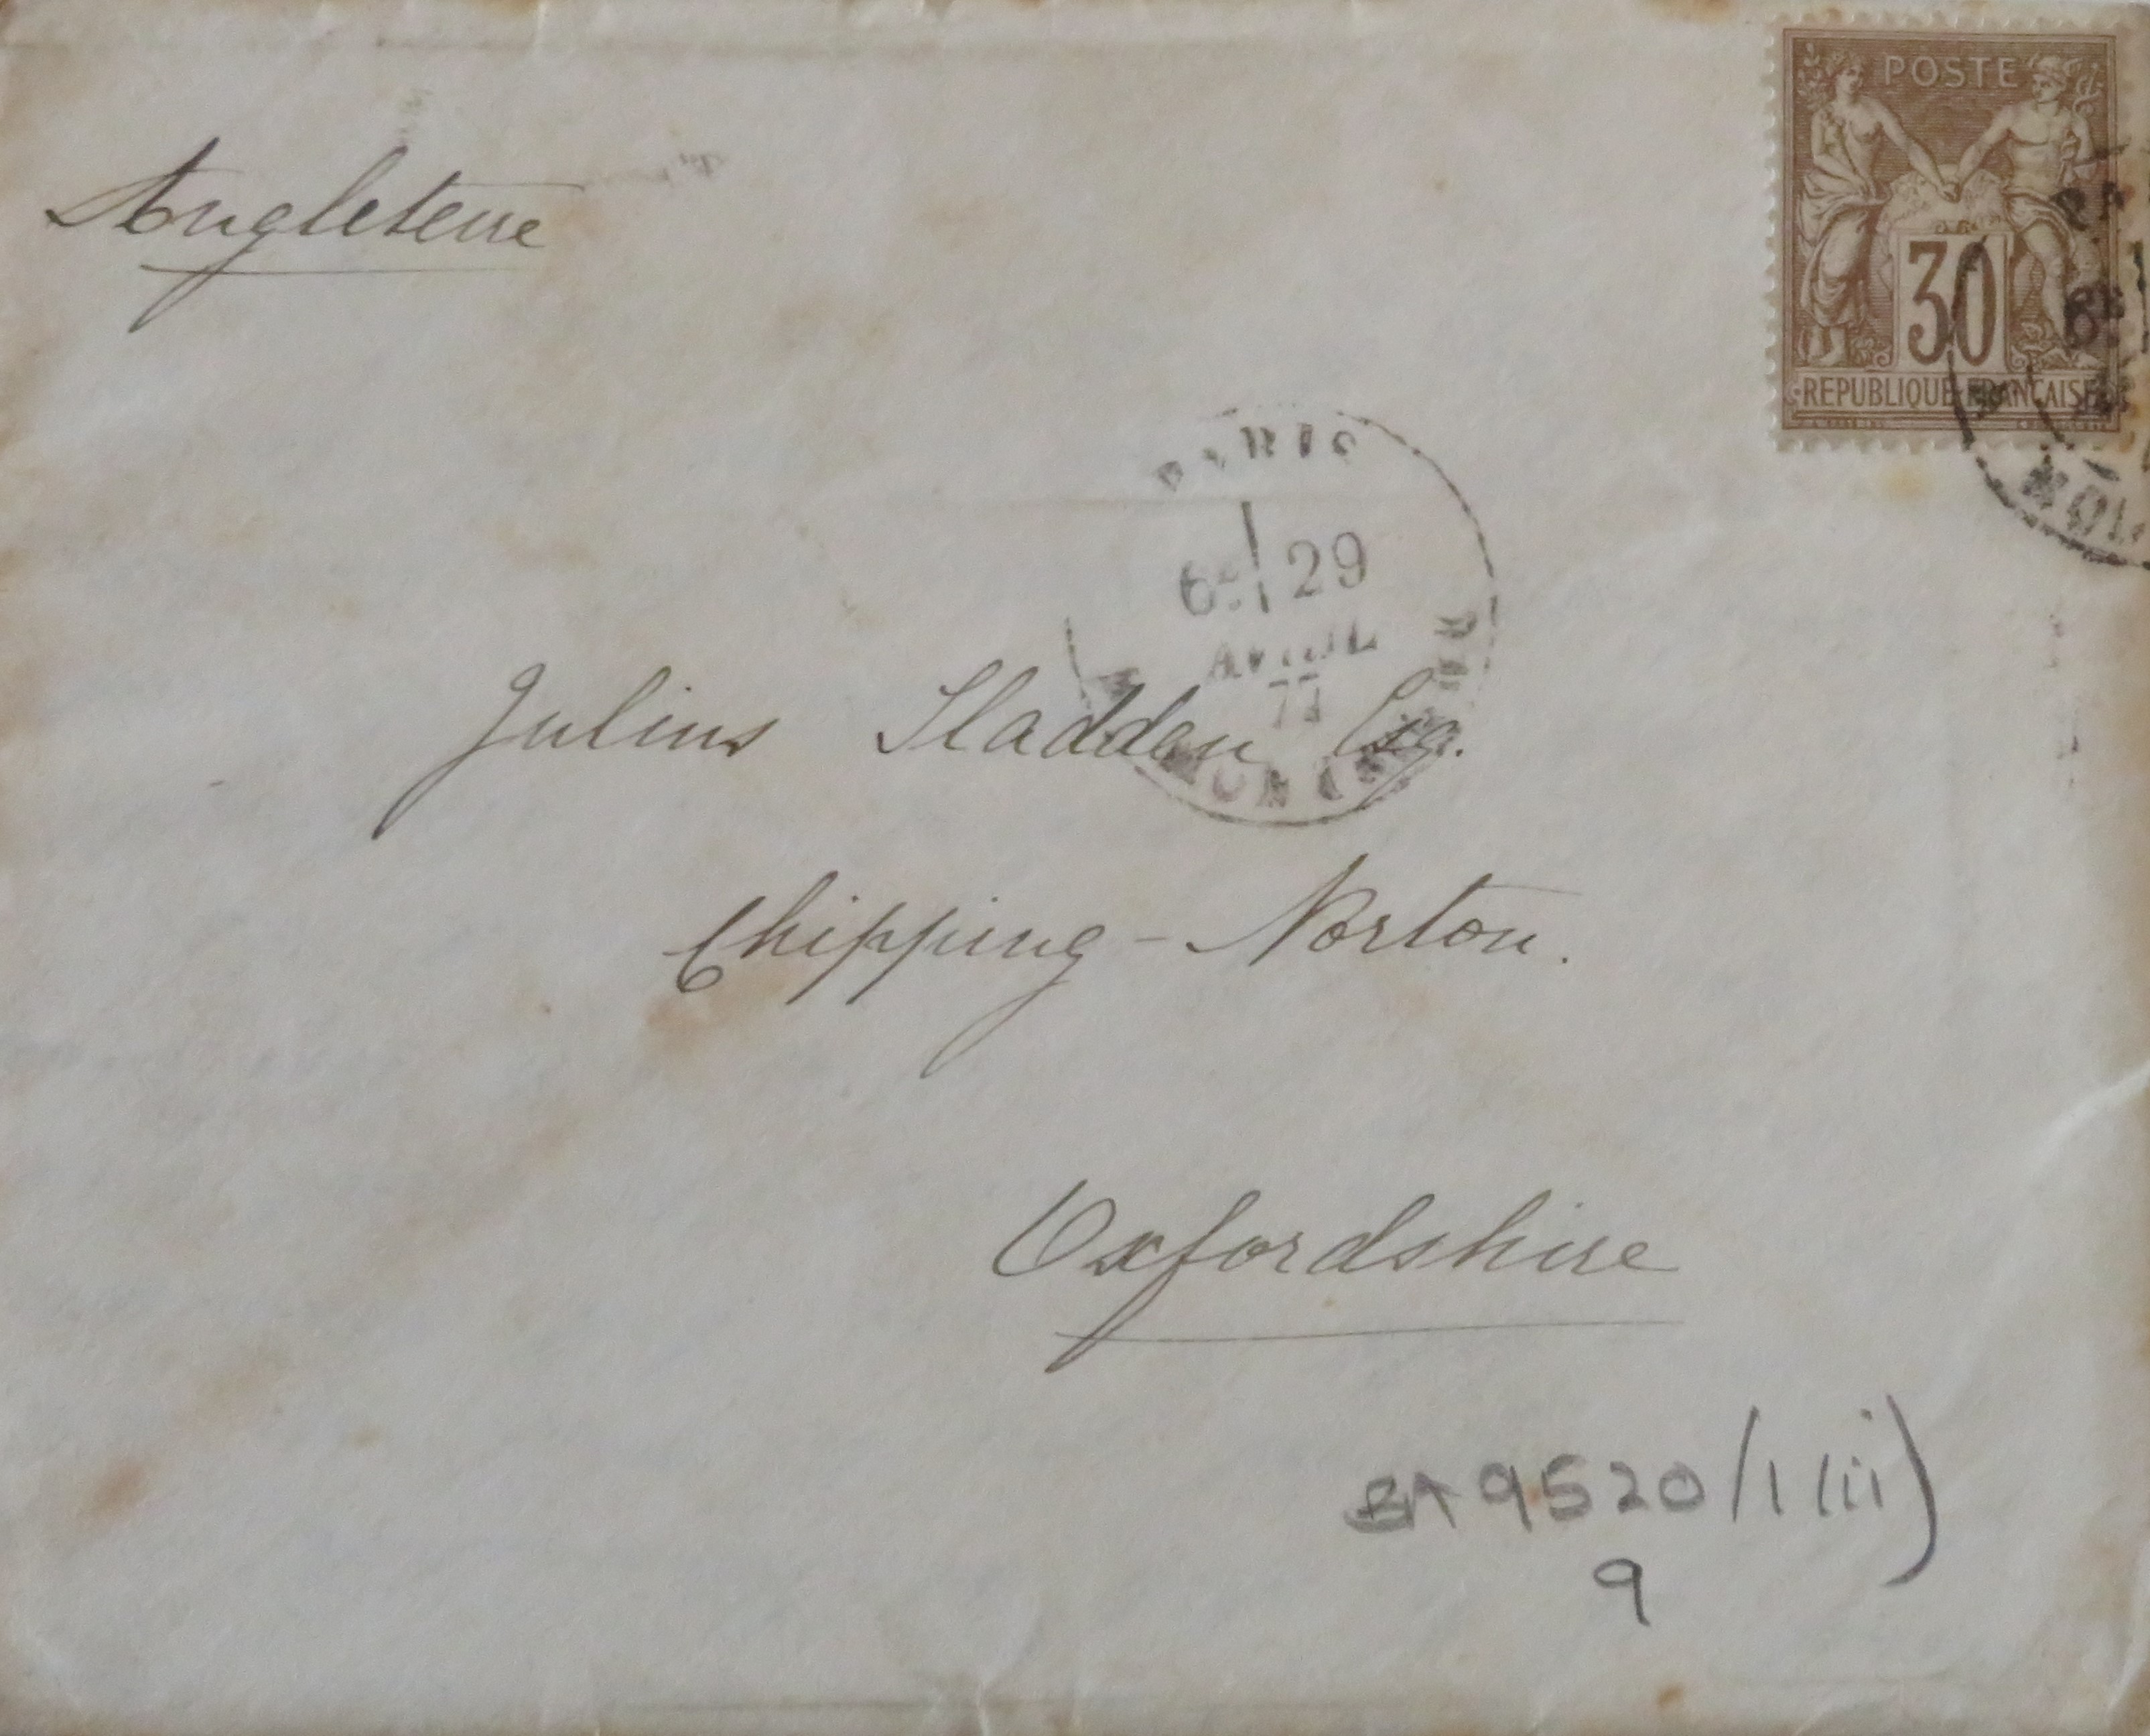 Angleterre
POSTE
30
REPUBLIQUE FRANÇAISE
PARIS
6E 29
AVRIL
77
Julius Sladden Esq.
Chipping - Norton.
Oxfordshire
BA 9520/1 (ii)
9